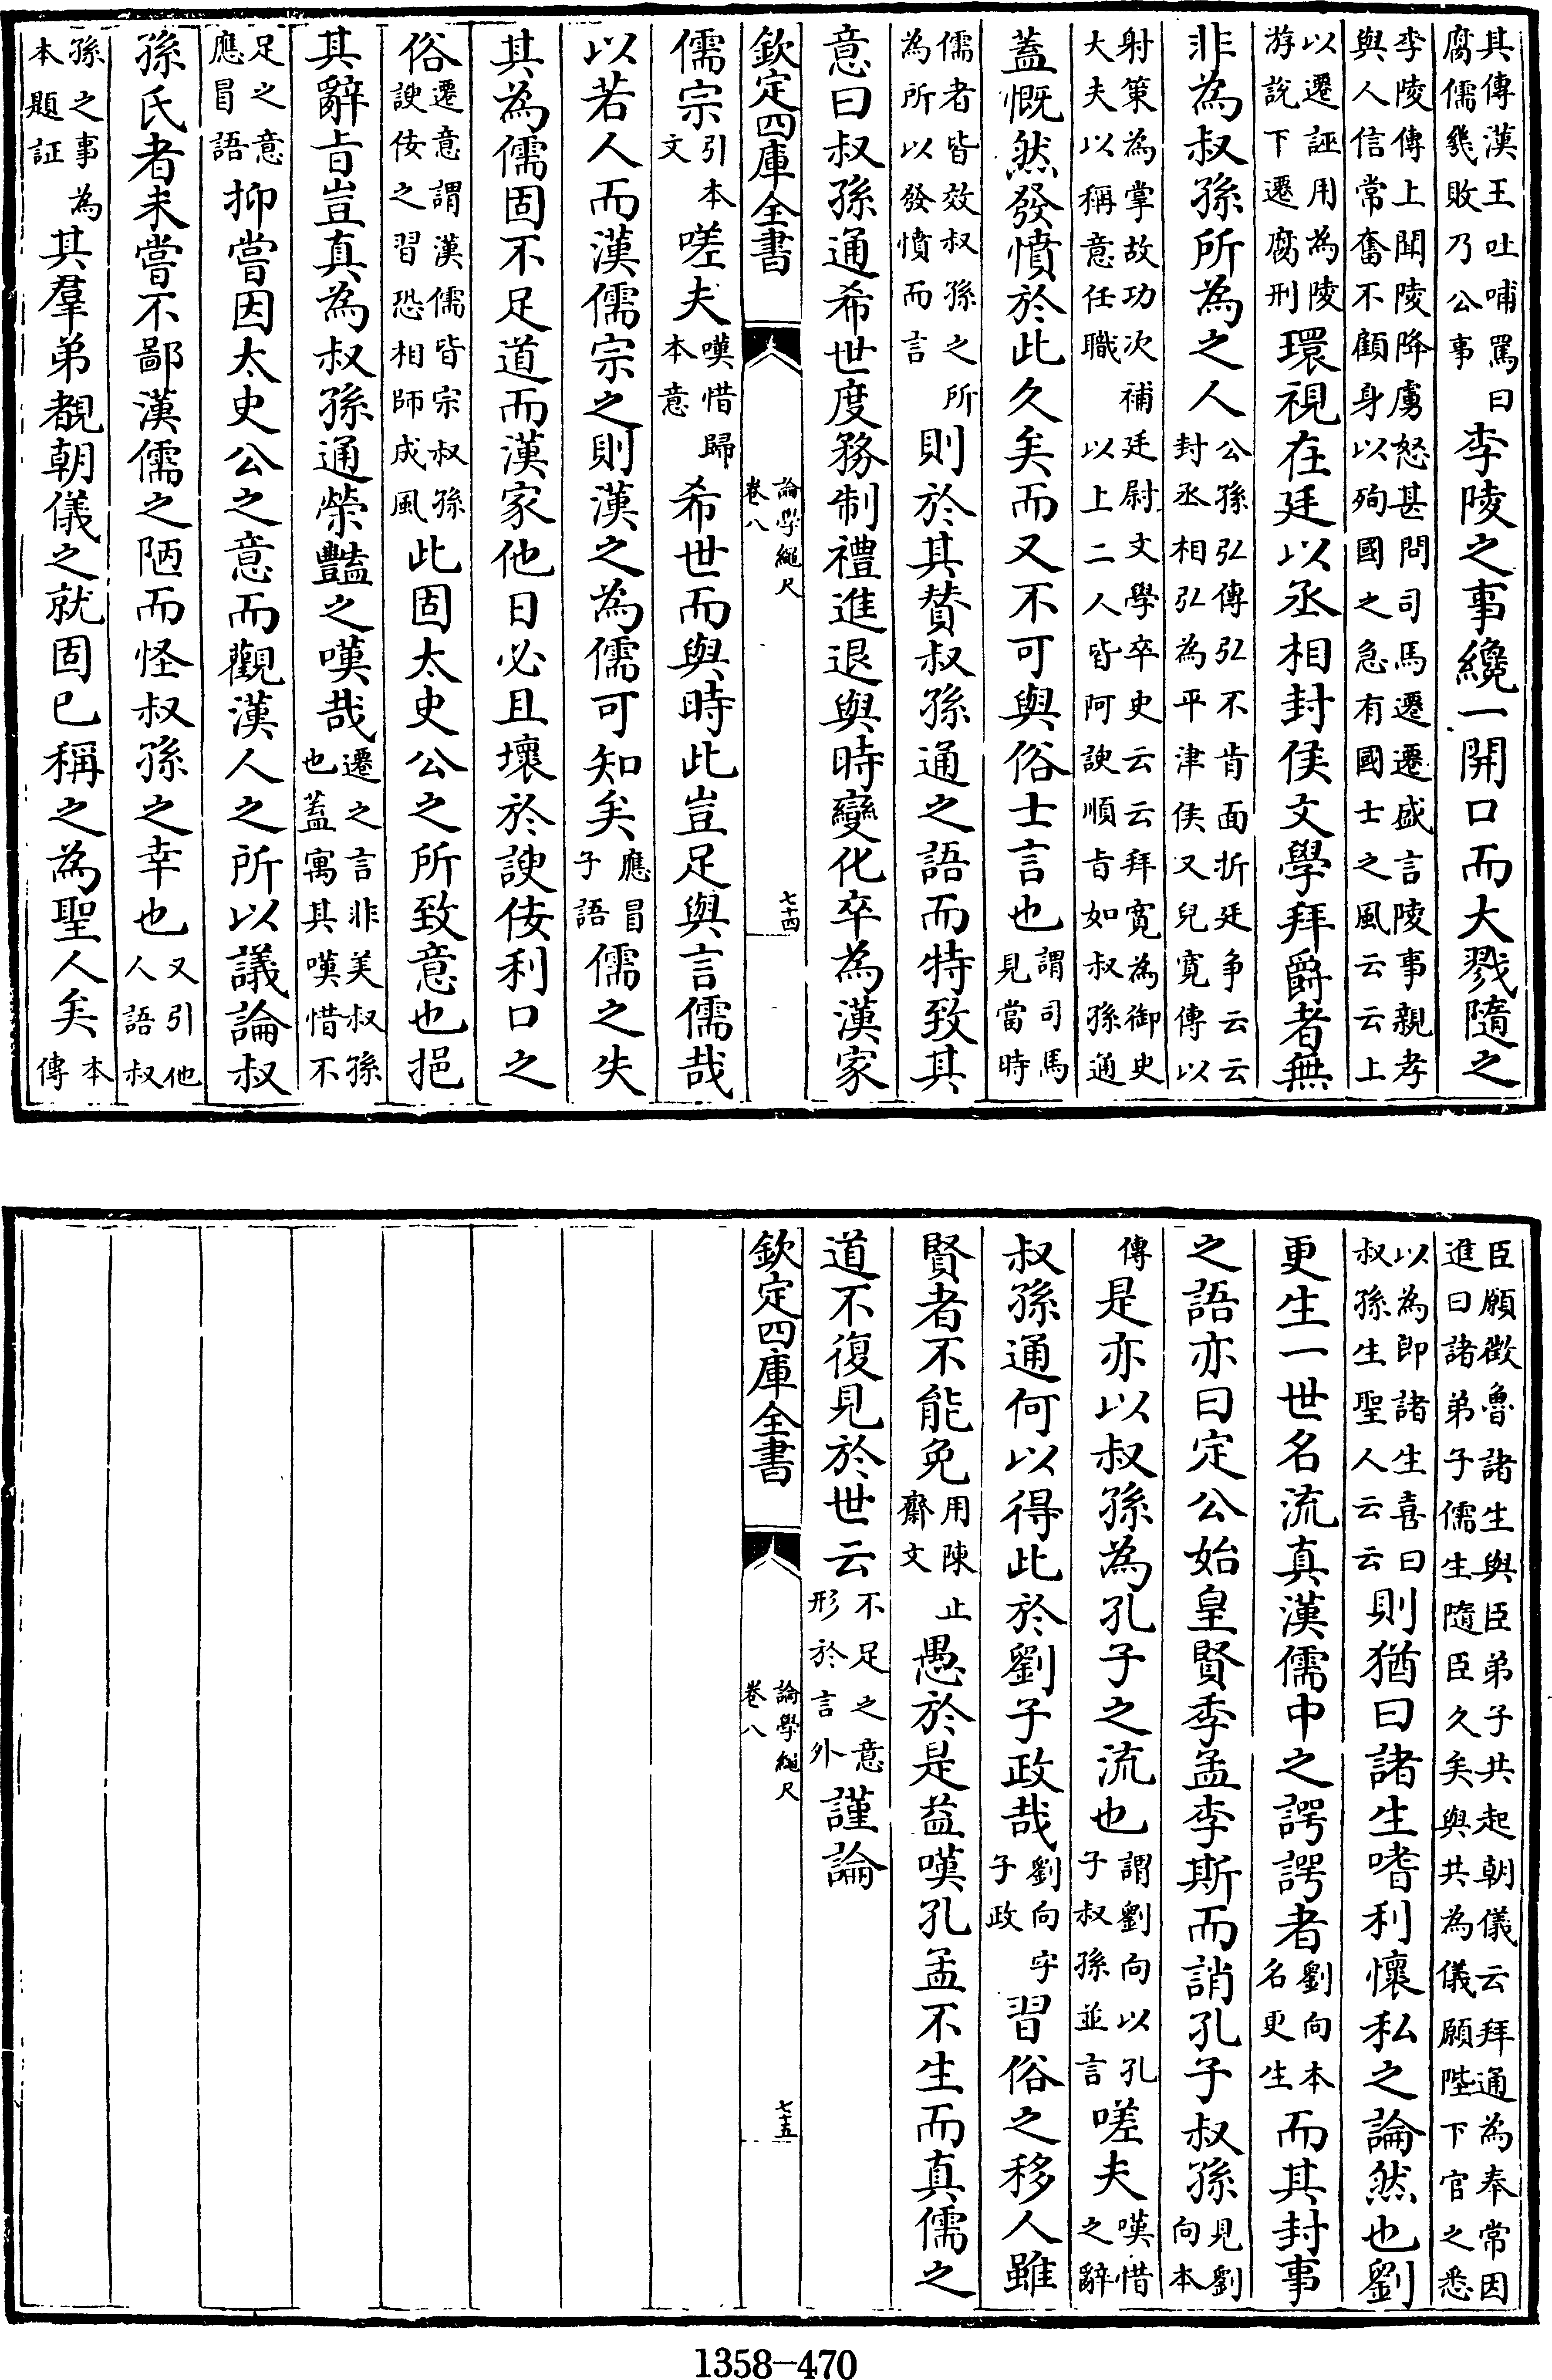 其傳漢王吐哺罵曰腐儒幾敗乃公事李陵之事纔一開口而大戮隨之
李陵傳上聞陵降虜怒甚問司馬遷遷盛言陵事親孝與人信常奮不顧身以殉國之急有國士之風云云上
以遷誣用為陵游説下遷腐刑環視在廷以丞相封侯文學拜爵者無
非為叔孫所為之人公孫弘傳弘不肯面折廷争云云封丞相弘為平津侯又兒寛傳以
射策為掌故功次補廷尉文學卒史云云拜寛為御史大夫以稱意任職以上二人皆阿諛順㫖如叔孫通
蓋慨然發憤於此久矣而又不可與俗士言也謂司馬見當時
儒者皆效叔孫之所為所以發憤而言則於其賛叔孫通之語而特致其
意曰叔孫通希世度務制禮進退與時變化卒為漢家
欽定四庫全書
論學繩尺
卷八
七十四
儒宗引本文嗟夫嘆惜歸本意希世而與時此豈足與言儒哉
以若人而漢儒宗之則漢之為儒可知矣應冒子語儒之失
其為儒固不足道而漢家他日必且壞於諛佞利口之
俗遷意謂漢儒皆宗叔孫諛佞之習恐相師成風此固太史公之所致意也挹
其辭㫖豈真為叔孫通榮豔之嘆哉遷之言非美叔孫也蓋寓其嘆惜不
足之意應冒語抑嘗因太史公之意而觀漢人之所以議論叔
孫氏者未嘗不鄙漢儒之陋而怪叔孫之幸也又引他人語叔
孫之事為本題証其羣弟覩朝儀之就固已稱之為聖人矣本傳
臣願徴魯諸生與臣弟子共起朝儀云拜通為奉常因進曰諸弟子儒生隨臣久矣與共為儀願陛下官之悉
以為郎諸生喜曰叔孫生聖人云云則猶曰諸生嗜利懷私之論然也劉
更生一世名流真漢儒中之諤諤者劉向本名更生而其封事
之語亦曰定公始皇賢季孟李斯而誚孔子叔孫見劉向本
傳是亦以叔孫為孔子之流也謂劉向以孔子叔孫並言嗟夫嘆惜之辭
叔孫通何以得此於劉子政哉劉向字子政習俗之移人雖
賢者不能免用陳止齋文愚於是益嘆孔孟不生而真儒之
道不復見於世云不足之意形於言外謹論
欽定四庫全書
論學繩尺
卷八
七十五
1358-470